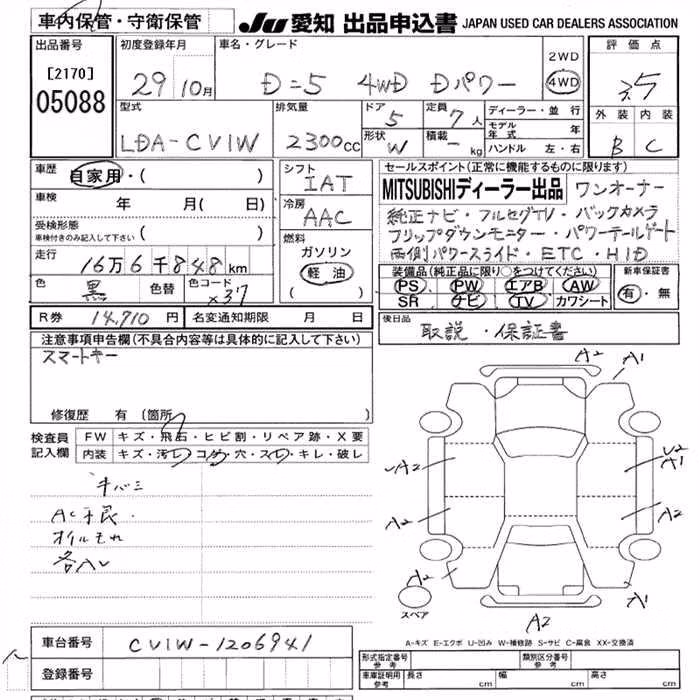 車内保管・守衛保管
JU 愛知 出品申込書 JAPAN USED CAR DEALERS ASSOCIATION
出品番号 初度登録年月 車名・グレード 評価点
[2170] 29 10月 D=5 4WD Dパワー 2WD
05088 4WD
型式 排気量 ドア 定員 ディーラー・並行 外装 内装
5 7人 モデル年式 年
LDA-CV1W 2300cc 形状 W 積載 - kg ハンドル 左・右 B C
車歴 自家用・( ) シフト セールスポイント(正常に機能するものに限ります)
IAT MITSUBISHIディーラー出品 ワンオーナー
車検 年 月( 日) 冷房
AAC 純正ナビ・フルセグTV・バックカメラ
受検形態 ( ) フリップダウンモニター・パワーテールゲート
車検付きのみ記入して下さい 燃料
走行 16万6千848km ガソリン 両側パワースライド・ETC・HID
軽油 装備品(純正品に限り○をつけてください) 新車保証書
色 黒 色替 色コード X37 ( ) PS PW エアB AW 有・無
SR ナビ TV カワシート
R券 14,710円 名変通知期限 月 日 後日品
取説・保証書
注意事項申告欄(不具合内容等は具体的に記入して下さい)
スマートキー
A2 A1
修復歴 有(箇所 )
検査員 FW キズ・飛石・ヒビ割・リペア跡・X要
記入欄 内装 キズ・汚レ・コゲ・穴・スレ・キレ・破レ
A2 A1
A2 A2
A2 A1
スペア
A2
A-キズ E-エクボ U-凹み W-補修跡 S-サビ C-腐食 XX-交換済
車台番号 CV1W-1206941
形式指定番号 参考 類別区分番号 参考
登録番号 車庫証明用 参考 長さ cm 幅 cm 高さ cm